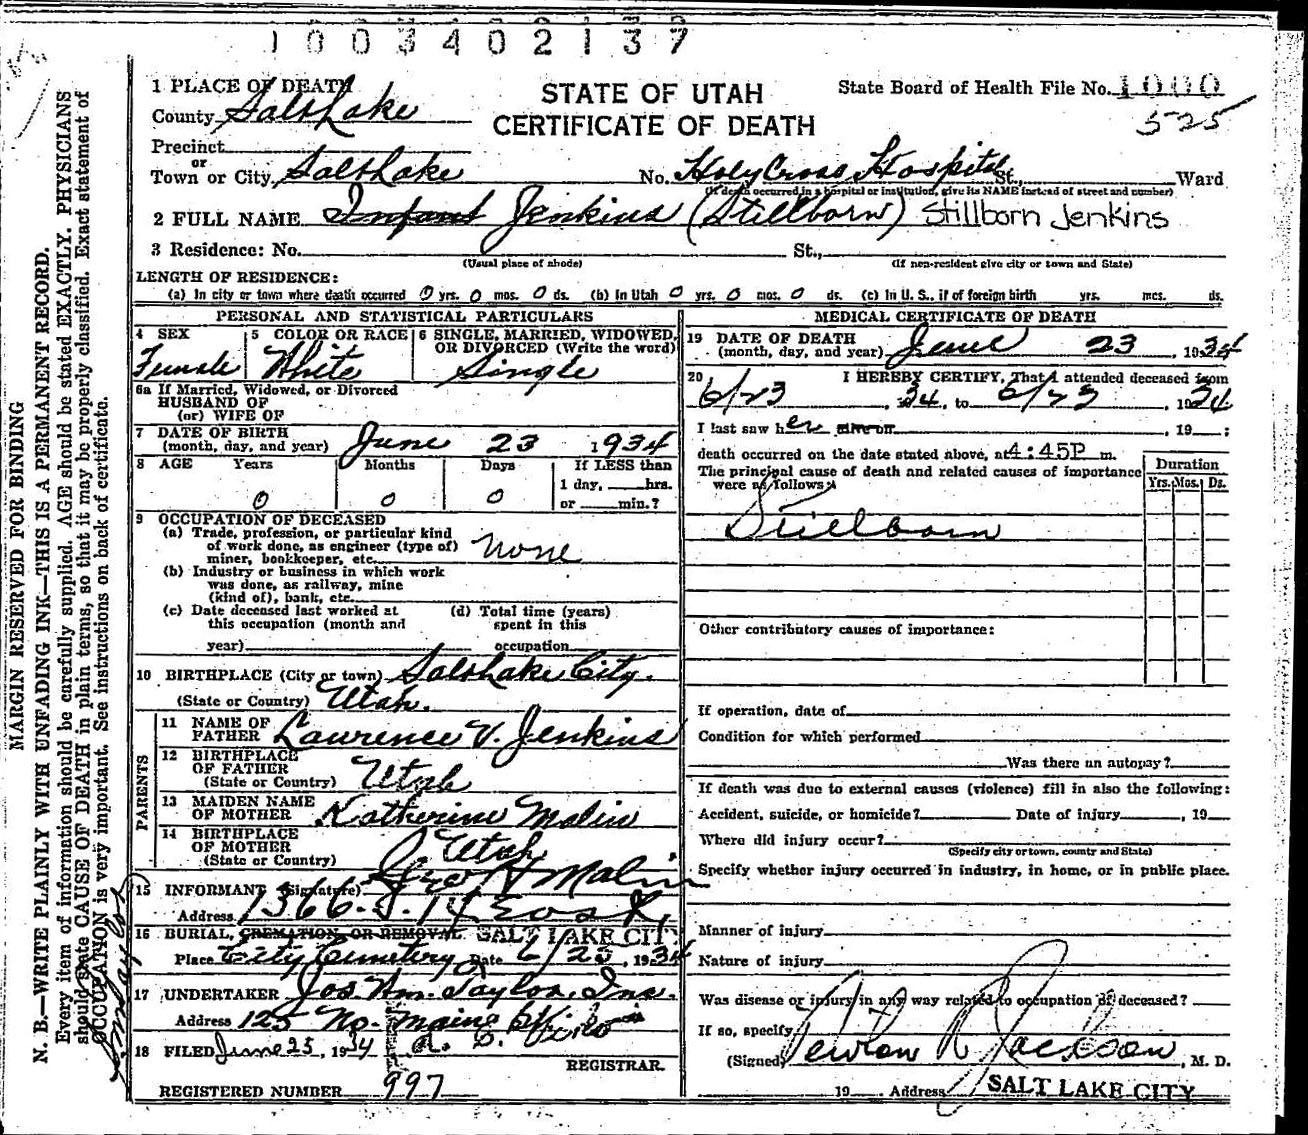 1003402137
1 PLACE OF DEATH
STATE OF UTAH
CERTIFICATE OF DEATH
State Board of Health File No. 1000
525
County Salt Lake
Precinct
or
Town or City Salt Lake No. Holy Cross Hospital St., Ward
(If death occurred in a hospital or institution, give its NAME instead of street and number)
2 FULL NAME Infant Jenkins (Stillborn) Stillborn Jenkins
3 Residence: No. St.,
(Usual place of abode) (If non-resident give city or town and State)
LENGTH OF RESIDENCE:
(a) In city or town where death occurred 0 yrs. 0 mos. 0 ds. (b) In Utah 0 yrs. 0 mos. 0 ds. (c) In U. S., if of foreign birth yrs. mos. ds.
PERSONAL AND STATISTICAL PARTICULARS
4 SEX
Female
5 COLOR OR RACE
White
6 SINGLE, MARRIED, WIDOWED, OR DIVORCED (Write the word)
Single
6a If Married, Widowed, or Divorced
HUSBAND OF
(or) WIFE OF
7 DATE OF BIRTH
(month, day, and year) June 23 1934
8 AGE Years Months Days If LESS than
1 day, hrs.
0 0 0 or min.?
9 OCCUPATION OF DECEASED
(a) Trade, profession, or particular kind
of work done, as engineer (type of)
miner, bookkeeper, etc. None
(b) Industry or business in which work
was done, as railway, mine
(kind of), bank, etc.
(c) Date deceased last worked at
this occupation (month and
year)
(d) Total time (years)
spent in this
occupation
10 BIRTHPLACE (City or town) Salt Lake City.
(State or Country) Utah.
PARENTS
11 NAME OF
FATHER Lawrence V. Jenkins
12 BIRTHPLACE
OF FATHER
(State or Country) Utah
13 MAIDEN NAME
OF MOTHER Katherine Malin
14 BIRTHPLACE
OF MOTHER
(State or Country) Utah
15 INFORMANT (Signature) Geo H Malin
Address 1366 S. 14 East
16 BURIAL, CREMATION, OR REMOVAL SALT LAKE CITY
Place City Cemetery Date 6/25, 1934
17 UNDERTAKER Jos. Wm. Taylor, Inc.
Address 125 No. Main
18 FILED June 25, 1934
REGISTRAR.
REGISTERED NUMBER 997
MEDICAL CERTIFICATE OF DEATH
19 DATE OF DEATH
(month, day, and year) June 23, 1934
20 I HEREBY CERTIFY, That I attended deceased from
6/23, 34, to 6/23, 1934
I last saw her alive on , 19 ;
death occurred on the date stated above, at 4:45P m.
The principal cause of death and related causes of importance
were as follows:
Duration
Yrs. Mos. Ds.
Stillborn
Other contributory causes of importance:
If operation, date of
Condition for which performed
Was there an autopsy?
If death was due to external causes (violence) fill in also the following:
Accident, suicide, or homicide? Date of injury , 19
Where did injury occur?
(Specify city or town, county and State)
Specify whether injury occurred in industry, in home, or in public place.
Manner of injury
Nature of injury
Was disease or injury in any way related to occupation of deceased?
If so, specify
(Signed) Newton R Jackson, M. D.
19 Address SALT LAKE CITY
MARGIN RESERVED FOR BINDING
N. B.—WRITE PLAINLY WITH UNFADING INK—THIS IS A PERMANENT RECORD.
Every item of information should be carefully supplied. AGE should be stated EXACTLY. PHYSICIANS
should state CAUSE OF DEATH in plain terms, so that it may be properly classified. Exact statement of
OCCUPATION is very important. See instructions on back of certificate.